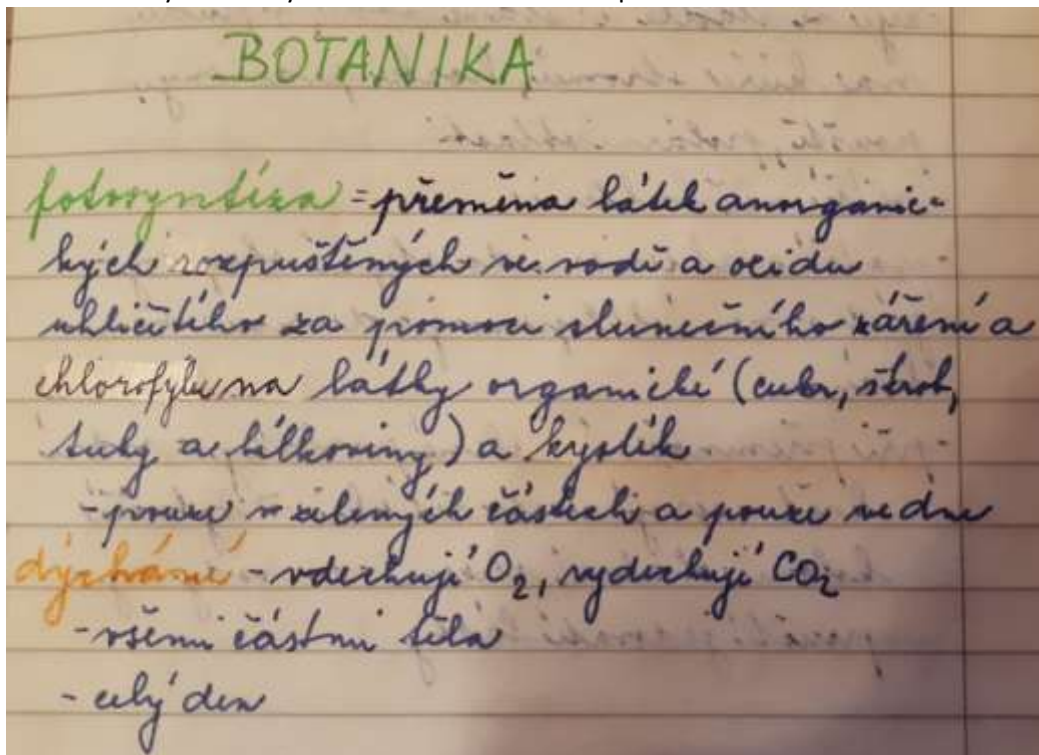 BOTANIKA
fotosyntéza = přeměna látek anorganic-
kých rozpuštěných ve vodě a oxidu
uhličitého za pomoci slunečního záření a
chlorofylu na látky organické (cukr, škrob,
tuky a bílkoviny) a kyslík
- pouze v zelených částech a pouze ve dne
dýchání - vdechují O₂, vydechují CO₂
- všemi částmi těla
- celý den